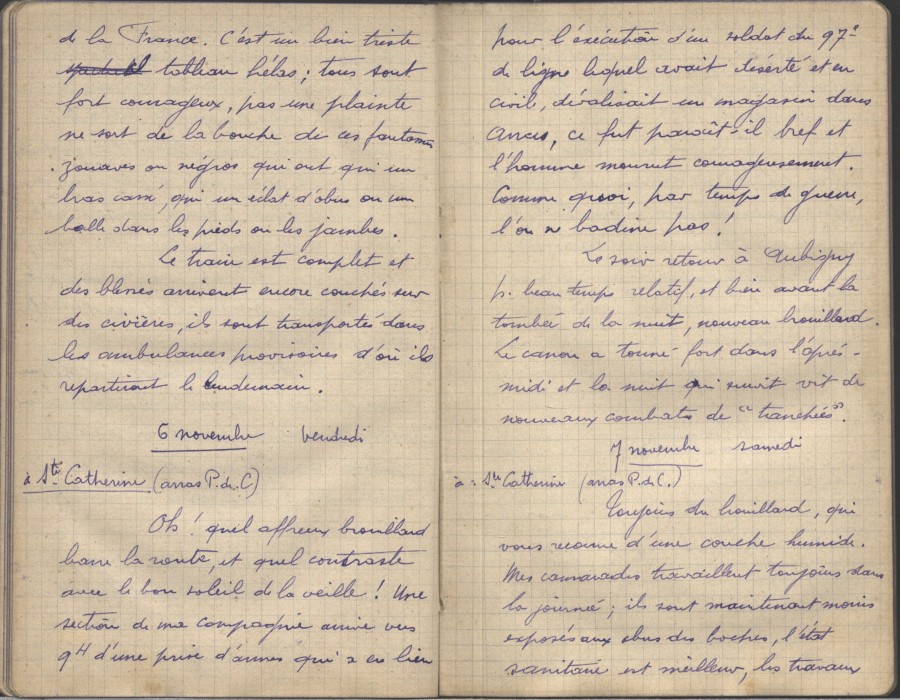 de la France. C'est un bien triste
tableau hélas ; tous sont
fort courageux, pas une plainte
ne sort de la bouche de ces fantomes
zouaves ou négros qui ont qui un
bras cassé, qui un éclat d'obus ou un
balle dans les pieds ou les jambes.
Le train est complet et
des blessés arrivent encore couchés sur
des civières, ils sont transportés dans
les ambulances provisoires d'où ils
repartiront le lendemain.
6 novembre vendredi
à Ste Catherine (arras P. de C)
Oh ! quel affreux brouillard
barre la route, et quel contraste
avec le bon soleil de la veille ! Une
section de ma compagnie arrive vers
9H d'une prise d'armes qui a eu lieu
pour l'éxécution d'un soldat du 97e
de ligne lequel avait déserté et en
civil, dévalisait un magasin dans
Arras, ce fut paraît-il bref et
l'homme mourut courageusement.
Comme quoi, par temps de guerre,
l'on ne badine pas !
Le soir retour à Aubigny
p. beau temps relatif, et bien avant la
tombée de la nuit, nouveau brouillard.
Le canon a tonné fort dans l'après-
midi et la nuit qui suivit vit de
nouveaux combats de "tranchées".
7 novembre samedi
à : Ste Catherine (arras P. de C.)
Toujours du brouillard, qui
vous recouvre d'une couche humide.
Mes camarades travaillent toujours dans
la journée ; ils sont maintenant moins
exposés aux obus des boches, l'état
sanitaire est meilleur, les travaux